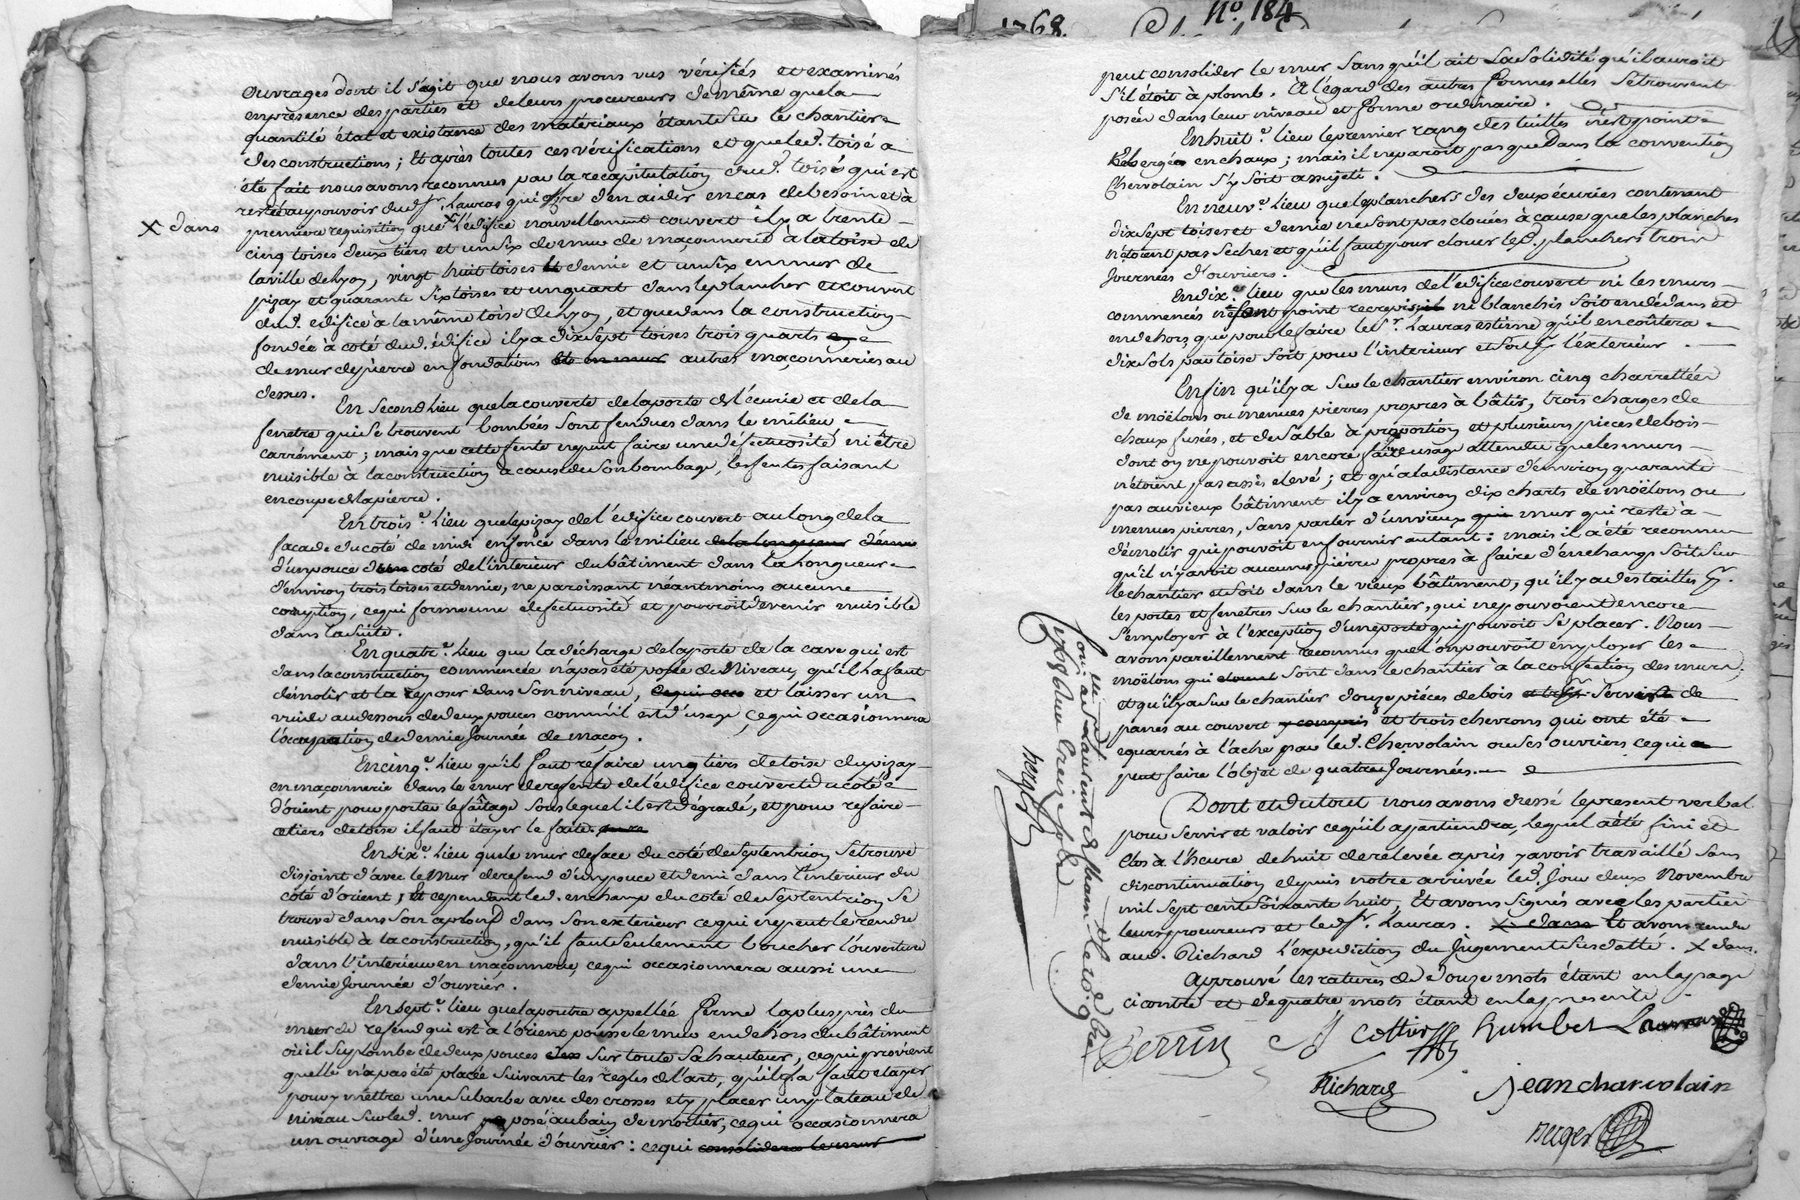 ouvrages dont il s'agit que nous avons vus vérifiés et examinés
en presence des parties et de leurs procureurs de même que la
quantité état et existance des matériaux étants sur le chantier
des constructions ; Et après toutes ces vérifications et que led. toisé a
été fait nous avons reconnus par la recapitulation dud. toisé qui est
resté au pouvoir dud. sr. Lauras qui offre d'en aider en cas de besoin et à
première requisition que X l'édifice nouvellement couvert il y a trente
X dans
cinq toises deux tiers et un six de mur de maçonnerie à la toise de
la ville de Lyon, vingt huit toises et demie et un six en mur de
pizay et quarante six toises et un quart dans le plancher et couvert
dud. edifice à la même toise de Lyon, et que dans la construction
fondée à coté dud. édifice il y a dix sept toises trois quarts
de mur de pierre en fondations et en mur autres maçonneries au
dessus.
En second lieu que la couverte de la porte de l'écurie et de la
fenetre qui se trouvent bombées sont fendues dans le milieu
carrément ; mais que cette fente ne peut faire une défectuosité ni être
nuisible à la construction à cause de son bombage, les fentes faisant
en coupe de la pierre.
En trois.e Lieu que le pizay de l'édifice couvert au long de la
façade du coté de midi enfonce dans le milieu de la longueur
d'un pouce du coté de l'interieur du bâtiment dans la Longueur
d'environ trois toises et demie, ne paroissant néantmoins aucune
, ce qui forme une defectuosité et pourroit devenir nuisible
dans la suite.
En quatr.e Lieu que la décharge de la porte de la cave qui est
dans la construction commencée n'a pas été posée de Niveau, qu'il la faut
démolir et la reposer dans son niveau, ce qui occa et laisser un
vuide au dessous de deux pouces comm'il est d'usage, ce qui occasionnera
l'occupation de demie Journée de maçon.
En cinq.e Lieu qu'il faut refaire un tiers de toise du pizay
en maçonnerie dans le mur de refente de l'édifice couvert du coté
d'orient pour porter le faitage sous lequel il est dégradé, et pour refaire
ce tiers de toise il faut étayer le faite.
En six.e Lieu que le mur de face du coté de Septentrion se trouve
disjoint d'avec le mur de refend d'un pouce et demi dans l'intérieur du
côté d'orient ; Et cependant led. en champ du coté de Septentrion se
trouve dans son aplomb dans son exterieur ce qui ne peut le rendre
nuisible à la construction, qu'il faut seulement boucher l'ouverture
dans l'intérieur en maçonnerie ce qui occasionnera aussi une
demie Journée d'ouvrier.
En sept.e lieu que la poutre appellée ferme la plus près du
mur de refend qui est à l'orient pousse le mur en dehors du bâtiment
où il surplombe de deux pouces sur toute sa hauteur, ce qui provient
quelle n'a pas été placée suivant les regles de l'art, qu'il y faut etayer
pour y mettre une subarbe avec des crosses et y placer un plateau de
niveau sur led. mur posé au bain de mortier, ce qui occasionnera
un ouvrage d'une Journée d'ouvrier : ce qui consolidera le mur
1768. No. 184
peut consolider le mur sans qu'il ait La Solidité qu'il auroit
S'il étoit à plomb. A l'égard des autres fermes elles se trouvent
posées dans leur niveau et forme ordinaire.
En huit.e lieu le premier rang des tuilles n'est point
hebergées en chaux ; mais il ne paroit pas que dans la convention
Chervolain S'y soit assujeti.
En neuv.e Lieu que les planchers des deux écuries contenant
dix sept toises et demie ne sont pas clouées à cause que les planches
n'étoient pas seches et qu'il faut pour clouer led. planchers trois
Journées d'ouvriers.
En dix.e lieu que les murs de l'edifice couvert ni les murs
commencés ne sont point recrepis ni blanchis soit en dedans et
en dehors que pour le faire le Sr. Lauras estime qu'il en coûtera
dix sols par toise soit pour l'interieur et soit pr. l'exterieur.
Enfin qu'il y a sur le chantier environ cinq charrettées
de moëlons ou menues pierres propres à bâtir, trois charges de
chaux fusées, et de sable à proportion et plusieurs pieces de bois
dont on ne pouvoit encore faire usage attendu que les murs
n'étoient pas assès elevé ; et qu'à la distance d'environ quarante
pas au vieux bâtiment il y a environ dix charts de moëlons ou
menues pierres, sans parler d'un vieux mur qui reste à
démolir qui pouvoit en fournir autant : mais il a été reconnu
qu'il n'y avoit aucunes pierre propres à faire d'en champs soit sur
le chantier et soit dans le vieux bâtiment, qu'il y a des tailles pr.
les portes et fenetres sur le chantier, qui ne pouvoient encore
s'employer à l'exception d'une porte qui pouvoit se placer. Nous
avons pareillement reconnus que l'on pouvoit employer les
moëlons qui etoient sont dans le chantier à la confection des murs,
et qu'il y a sur le chantier douze piéces de bois servant de
panes au couvert y compris et trois chevrons qui ont été
equarrés à l'ache par led. Chervolain ou ses ouvriers ce qui a
peut faire l'objet de quatre Journées.
Dont et du tout nous avons dressé le present verbal
pour servir et valoir ce qu'il appartiendra, lequel a été fini et
Clos à l'heure de huit de relevée après y avoir travaillé sans
discontinuation depuis notre arrivée led. jour deux Novembre
mil sept cent soixante huit, Et avons signés avec les parties
leurs procureurs et led. Sr. Lauras. X dans Et avons rendu
aud. Richard l'expedition du Jugement susdatté. X dans.
Approuvé les ratures de douze mots étant en la page
ci contre et de quatre mots étant en la presente.
Perrin Cottier humbert Lauras
Richard jean charvolain
berger
a St. Laurent de Cham le 10 9bre
1768 treize sols
berger